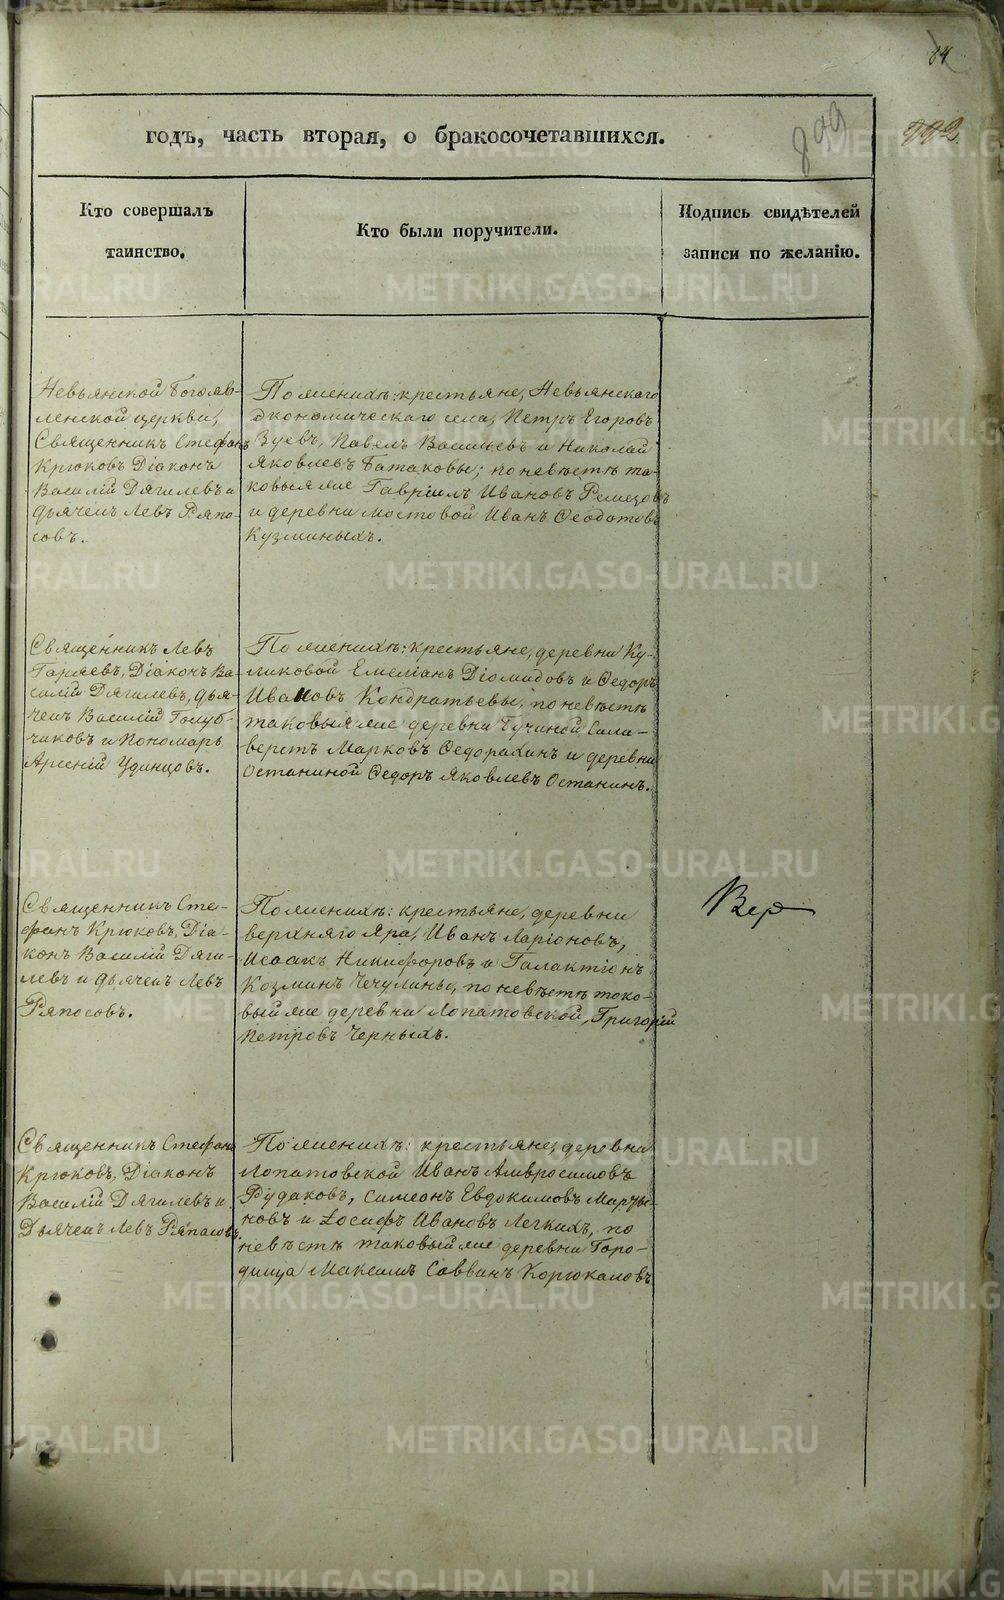 84
годъ, часть вторая, о бракосочетавшихся.
899
992.
Кто совершалъ
таинство.
Кто были поручители.
Подпись свидѣтелей
записи по желанію.
Невьянской Богояв-
ленской церкви,
Священникъ Стефанъ
Крюковъ Діаконъ
Василій Дягилевъ и
дьячекъ Левъ Ряпо-
совъ.
По женихѣ: крестьяне, Невьянскаго
Экономическаго села, Петръ Егоровъ
Зуевъ, Павелъ Васильевъ и Николай
Яковлевъ Батаковы; по невѣстѣ та-
ковыя же Гавріилъ Ивановъ Ремезовъ
и деревни Мостовой Иванъ Ѳеодотовъ
Кузминыхъ.
Священникъ Левъ
Гаряевъ, Діаконъ Ва-
силій Дягилевъ, дья-
чекъ Василій Голуб-
чиковъ и Пономарь
Арсеній Удинцовъ.
По женихѣ: крестьяне, деревни Ку-
ликовой Емеліанъ Діомидовъ и Ѳедоръ
Ивановъ Кондратьевы, по невѣстѣ
таковыя же деревни Бучиной Сели-
верстъ Марковъ Ѳедорахинъ и деревни
Останиной Ѳедоръ Яковлевъ Останинъ.
Священникъ Сте-
фанъ Крюковъ, Діа-
конъ Василій Дяги-
левъ и дьячекъ Левъ
Ряпосовъ.
По женихѣ: крестьяне, деревни
верхняго Яра, Иванъ Ларіоновъ,
Исаакъ Никифоровъ и Галактіонъ
Козминъ Чечулины, по невѣстѣ тако-
вый же деревни Лопатовской, Григорій
Петровъ Черныхъ.
Вер
Священникъ Стефанъ
Крюковъ, Діаконъ
Василій Дягилевъ и
Дьячекъ Левъ Ряпасовъ.
По женихѣ: крестьяне, деревни
Лопатовской Иванъ Амвросимовъ
Рудаковъ, Симеонъ Евдокимовъ Марты-
новъ и Іосифъ Ивановъ Легкихъ, по
невѣстѣ таковый же деревни Горо-
дища Максимъ Саввинъ Корюкаловъ
METRIKI.GASO-URAL.RU